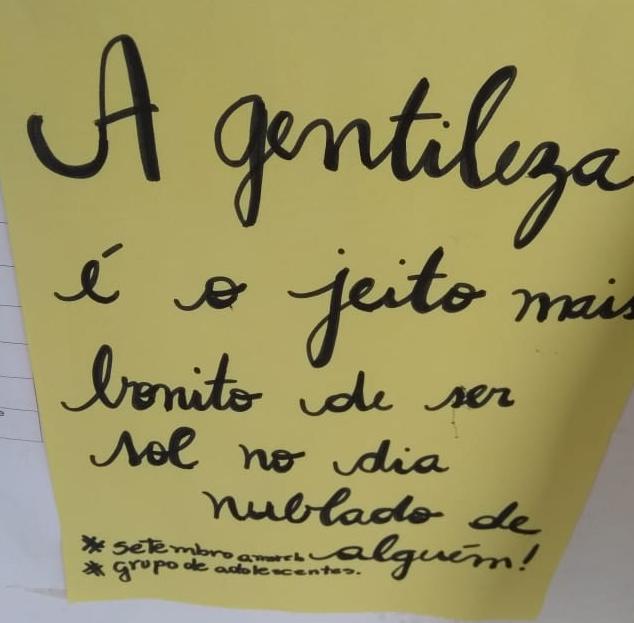 A gentileza
é o jeito mais
bonito de ser
sol no dia
nublado de
alguém!
* setembro
* grupo de adolescentes.